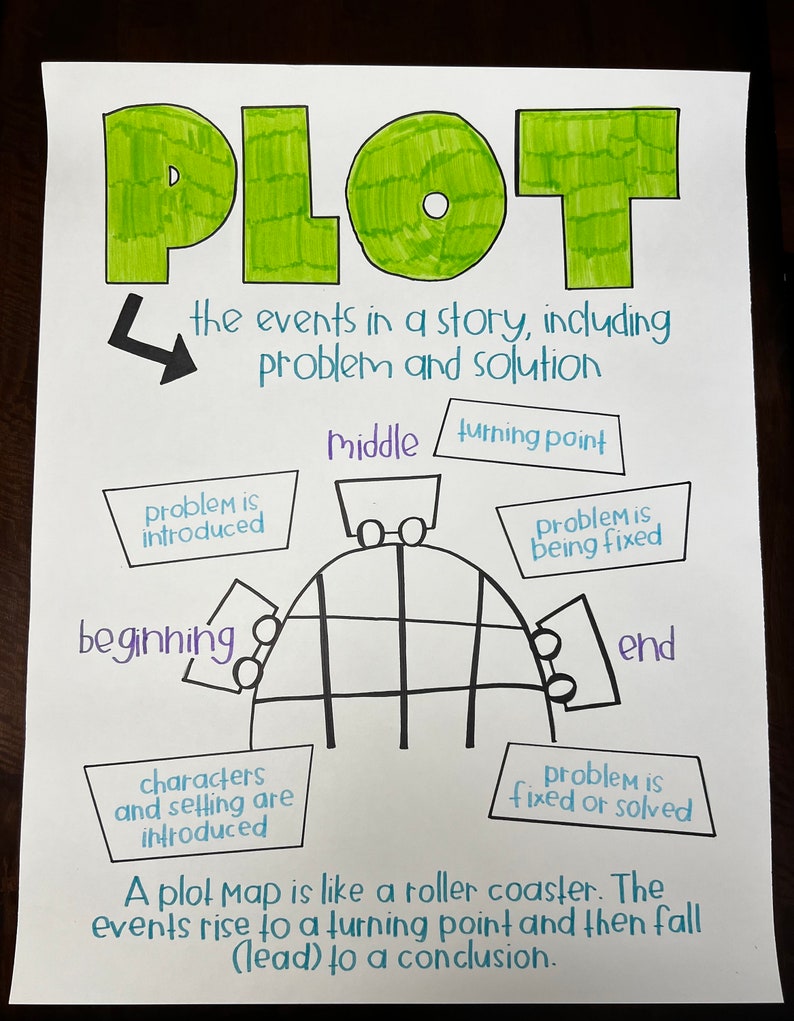 PLOT
the events in a story, including
problem and solution
middle
turning point
problem is
introduced
problem is
being fixed
beginning
end
characters
and setting are
introduced
problem is
fixed or solved
A plot map is like a roller coaster. The
events rise to a turning point and then fall
(lead) to a conclusion.